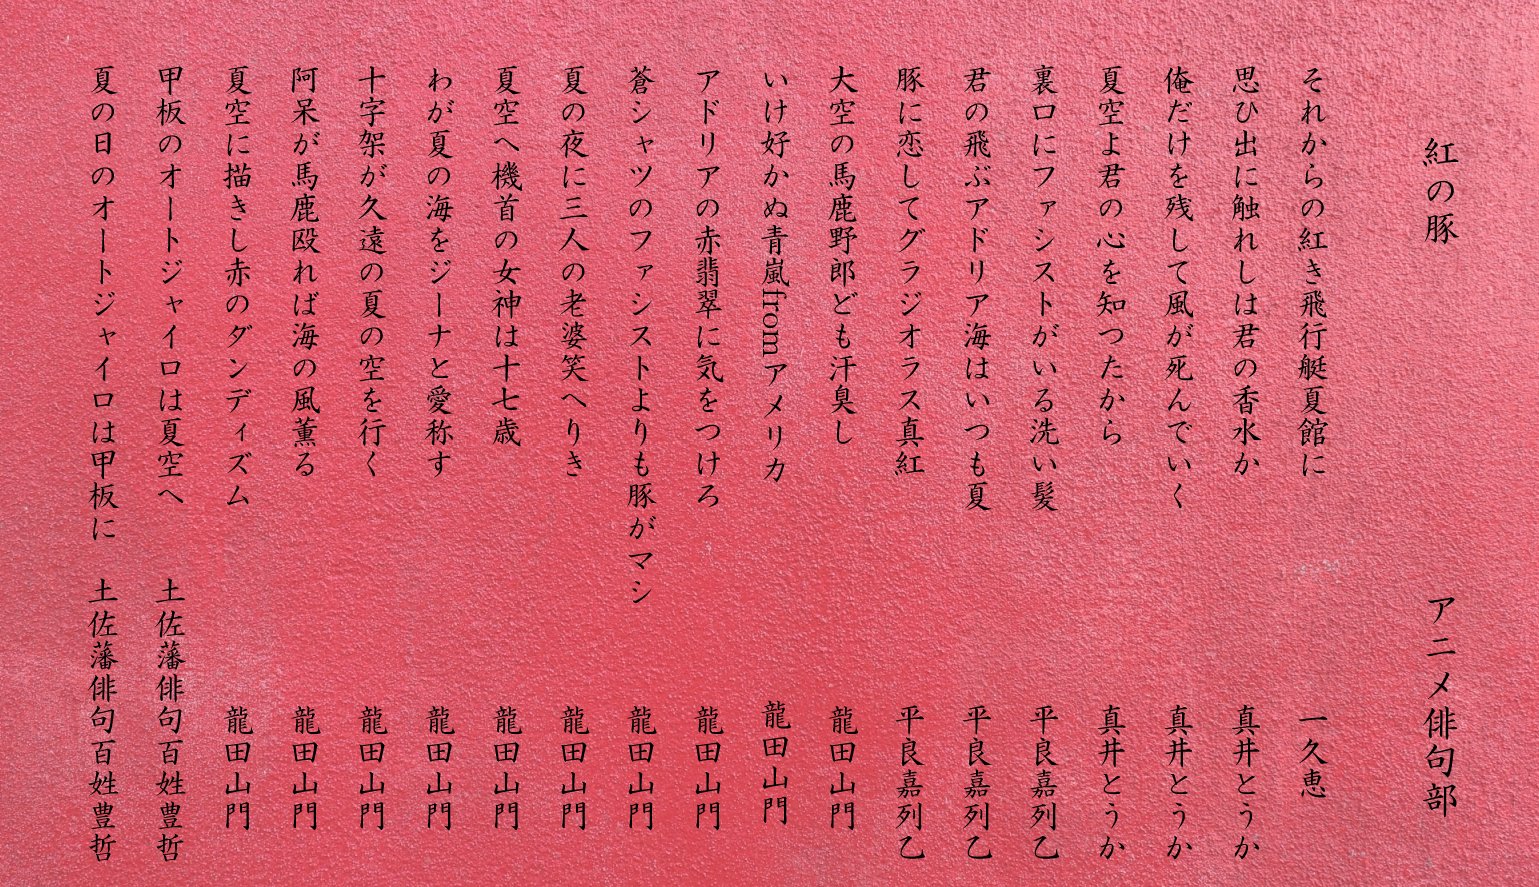 紅の豚　アニメ俳句部
それからの紅き飛行艇夏館に　一久恵
思ひ出に触れしは君の香水か　真井とうか
俺だけを残して風が死んでいく　真井とうか
夏空よ君の心を知つたから　真井とうか
裏口にファシストがいる洗い髪　平良嘉列乙
君の飛ぶアドリア海はいつも夏　平良嘉列乙
豚に恋してグラジオラス真紅　平良嘉列乙
大空の馬鹿野郎ども汗臭し　龍田山門
いけ好かぬ青嵐fromアメリカ　龍田山門
アドリアの赤翡翠に気をつけろ　龍田山門
蒼シャツのファシストよりも豚がマシ　龍田山門
夏の夜に三人の老婆笑へりき　龍田山門
夏空へ機首の女神は十七歳　龍田山門
わが夏の海をジーナと愛称す　龍田山門
十字架が久遠の夏の空を行く　龍田山門
阿呆が馬鹿殴れば海の風薫る　龍田山門
夏空に描きし赤のダンディズム　龍田山門
甲板のオートジャイロは夏空へ　土佐藩俳句百姓豊哲
夏の日のオートジャイロは甲板に　土佐藩俳句百姓豊哲